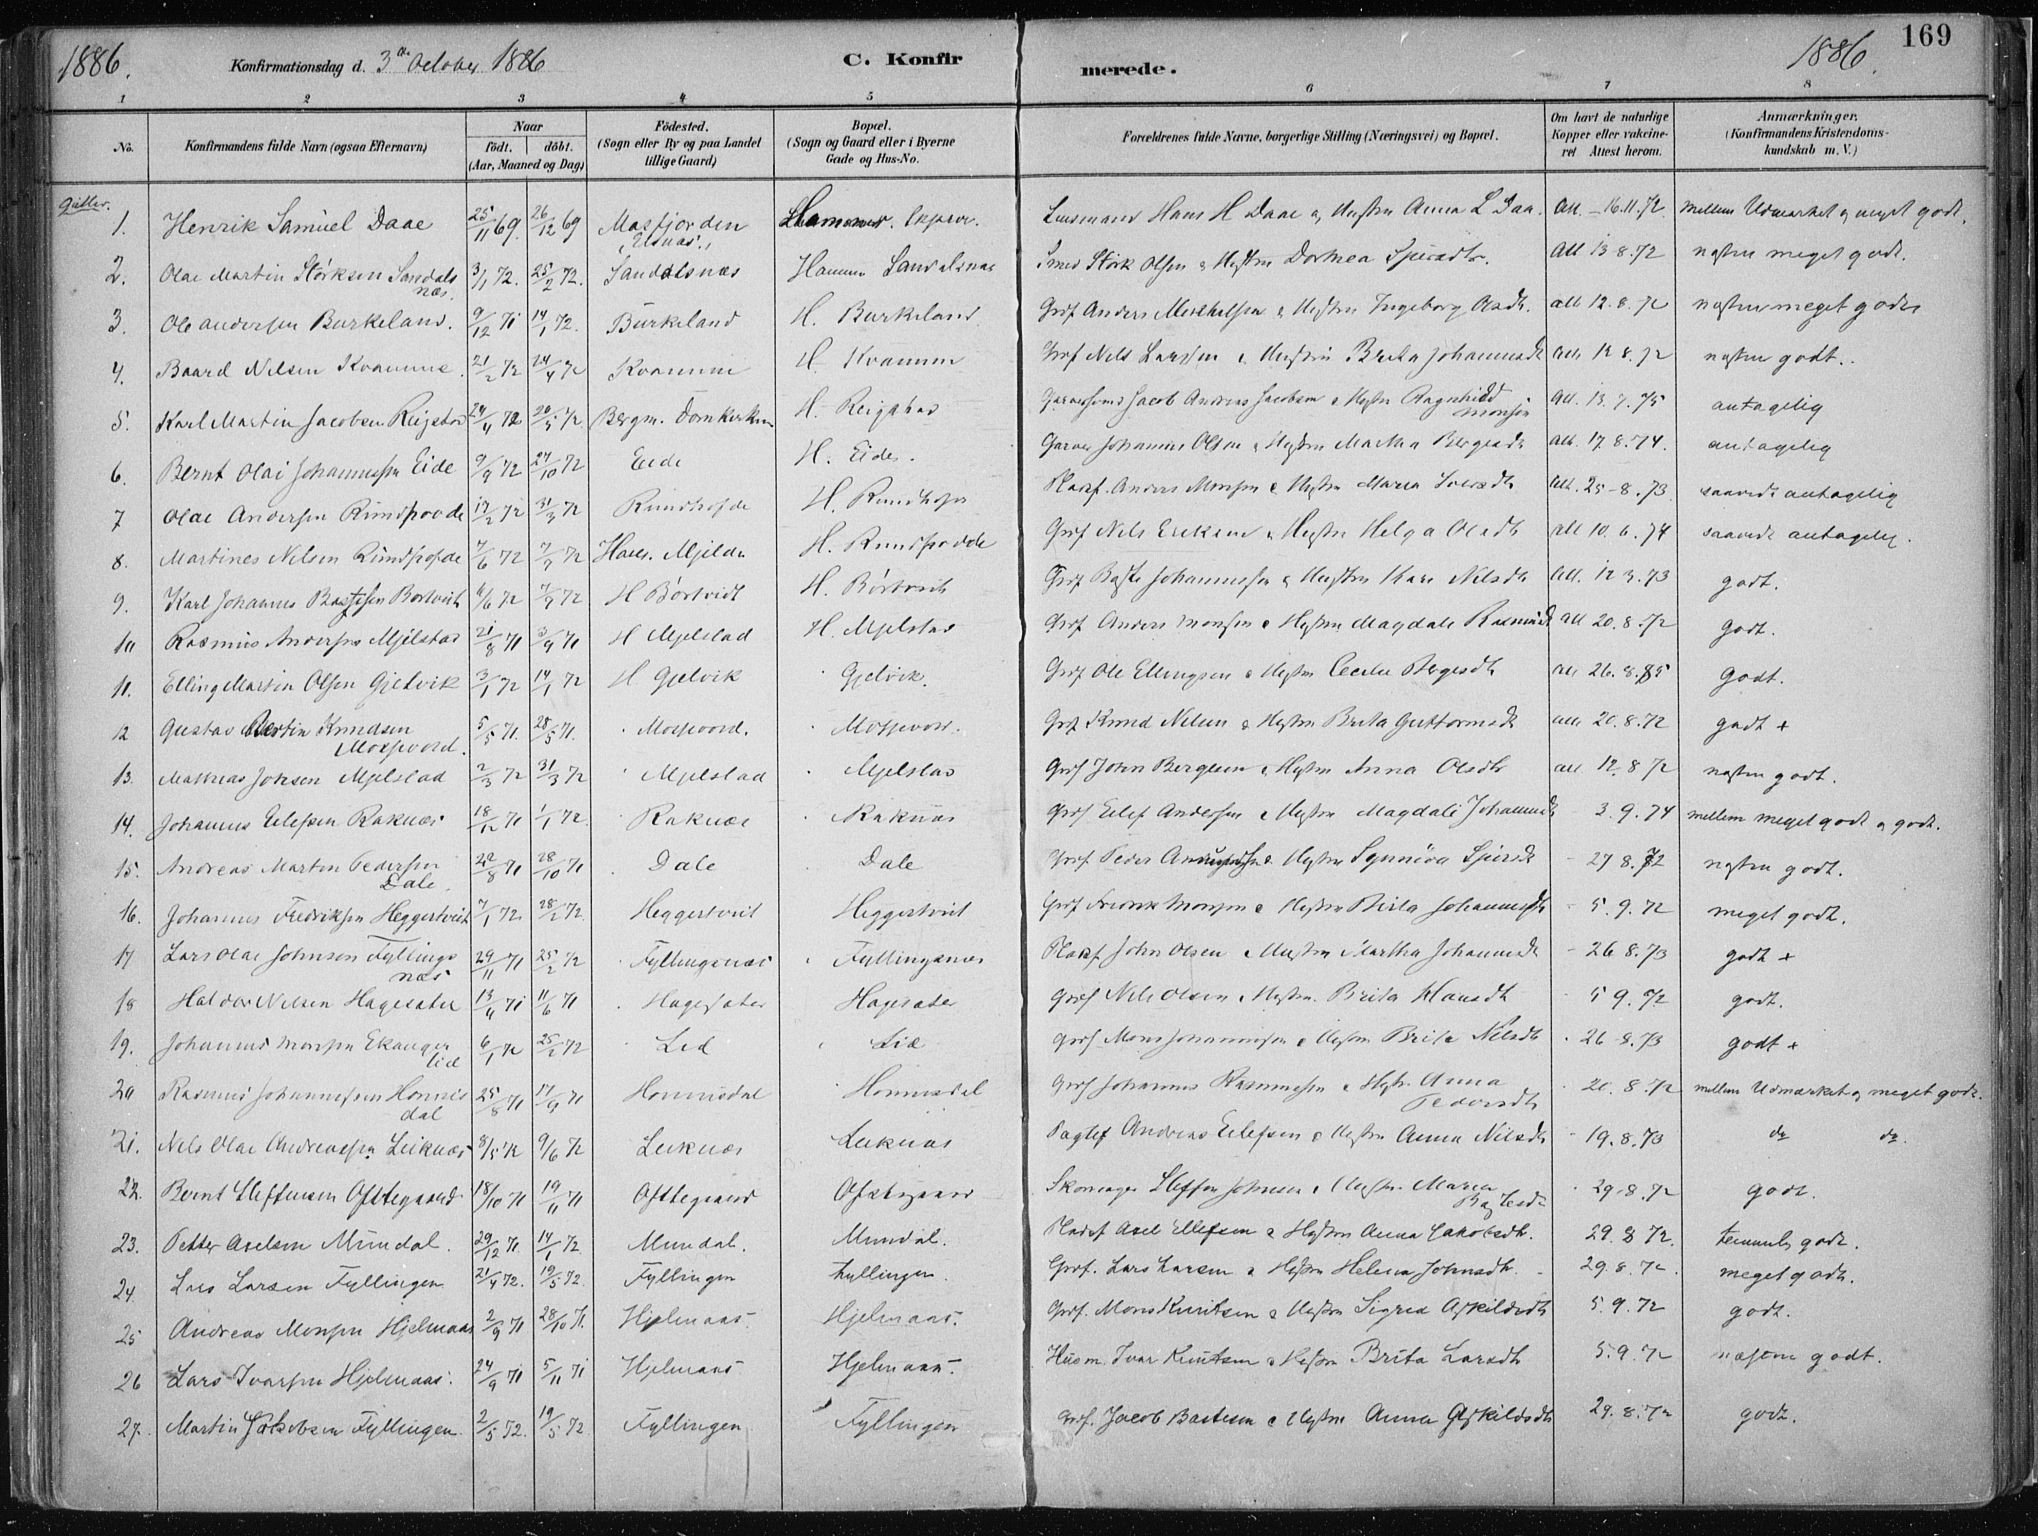 1886. Konfirmationsdag d. 3die October 1886 C. Konfirmerede. 1886. 169
1 2 3 4 5 6 7 8
No. Konfirmandens fulde Navn (ogsaa Efternavn) Naar födt. döbt. (Aar, Maaned og Dag) Födested. (Sogn eller By og paa Landet tillige Gaard) Bopæl. (Sogn og Gaard eller i Byerne Gade og Hus-No. Forældrenes fulde Navne, borgerlige Stilling (Næringsvei) og Bopæl. Om havt de naturlige Kopper eller vakcineret Attest herom. Anmærkninger. (Konfirmandens Kristendomskundskab m. V.)
Gutter.
1. Henrik Samuel Daae 25/11 69. 26/12 69 Masfjorden Hammer Lensmand Hans H Daae og Hustru Anna L Daa. Att. 16.11.72 mellem Udmærket og meget godt.
2. Olai Martin Störksen Sandalsnæs. 3/1 72. 25/2 72. Sandalsnæs Hammer Sandalsnæs Smed Störk Olsen & Hustru Dorthea Sjursdtr. Att 13 8.72 næsten meget godt.
3. Ole Andersen Burkeland. 9/12 71 14/1 72. Burkeland H. Burkeland Grdf Anders Mikkelsen & Hustru Ingeborg Olsdtr. Att 12.8.72 næsten meget godt
4. Baard Nilsen Kvamme. 21/2 72 24/4 72 Kvamme H. Kvamme Grdf Nils Larsen & Hustru Brita Johannesdtr Att 12 8.72 næsten godt.
5. Karl Martin Jacobsen Reigstad 24/4 72 20/5 72 Bergn. Domkirken H. Reigstad Jacob Andreas Jacobsen & Hustru Ragnhild Monsen Att. 13.7.75 antagelig
6. Bernt Olai Johannessen Eide 9/9 72 27/10 72 Eide H. Eide. Garver Johannes Olsen & Hustru Martha Bergesdtr Att. 17.8.74. antagelig
7 Olai Andersen Rundhovde 17/2 72 31/3 72 Rundhovde H. Rundhovde Pladsf. Anders Monsen & Hustru Maria Iversdtr Att. 25-8.73. saavidt antagelig
8. Martines Nilsen Rundhovde 7/6 72 7/7 72 Haus. Mjelde H. Rundhovde Grdf Nils Eriksen & Hustru Helga Olsdtr Att 10.6.74 saavidt antagelig.
9. Karl Johannes Bastesen Bortveit 6/6 72 7/7 72 H Börtveit H. Börtveit Grdf Baste Johannessen & Hustru Kari Nilsdtr Att. 12 3.73 godt.
10 Rasmus Andersen Mjelstad 21/8 71 3/9 71 H Mjelstad H. Mjelstad Grdf Anders Monsen & Hustru Magdali Rasmusdtr Att 20.8.72 godt.
11. Elling Martin Olsen Gjelvik 3/1 72 14/1 72 H. Gjelvik Gjelvik. Grdf Ole Ellingsen & Hustru Cecilia Bergesdtr Att 26.8.85 Godt.
12 Gustav Bertin Knudsen Mossevord. 5/5 71. 28/5 71. Mossevord. Mossevord. Grdf Knud Nilsen & Hustru Brita Guttormsdtr Att 20.8.72 godt +
13. Mathias Johsen Mjelstad 2/3 72 31/3 72 Mjelstad Mjelstad Grdf John Bergesen & Hustru Anna Olsdtr Att. 12.8 72 næsten godt.
14. Johannes Eilefsen Raknæs 18/12 71 1/1 72. Raknæs Raknæs Grdf Eilef Andersen & Hustru Magdali Johannesdtr 3.9.74 mellem meget godt og godt.
15. Andreas Martin Pedersen Dale. 22/8 71 28/10 71 Dale Dale Grdf Peder & Hustru Synnöva Sjursdtr 27 8.72 næsten godt.
16. Johannes Fredriksen Heggertveit 7/1 72 28/2 72. Heggertveit Heggertveit Grdf Fredrik Monsen & Hustru Brita Johannesdtr 5.9.72 meget godt.
17 Lars Olai Johnsen Fyllingsnæs 29/11 71 25/2 72 Fyllingsnæs Fyllingsnæs Pladsf John Olsen & Hustru Martha Johannesdtr 26 8.73 godt +
18 Haldor Nilsen Hagesæter 13/4 71 11/6 71 Hagesæter Hagesæter Grdf Nils Olsen & Hustru. Brita Hansdtr 5 9.72 godt.
19. Johannes Monsen Ekanger Lid 6/1 72 25/2 72 Lid Lid Grdf Mons Johannessen & Hustru Brita Nilsdtr 26 8.73 godt +
20 Rasmus Johannessen Honnisdal 25/8 71 17/9 71 Honnisdal Honnisdal Grdf Johannes Rasmussen & Hustr. Anna Pedersdtr 20.8.72 mellem Udmærket og meget godt.
21. Nils Olai Andreassen Leiknæs 8/5 72 9/6 72 Leiknæs Leiknæs Andreas Eilefsen & Hustru Anna Nilsdtr 19.8.73 do do.
22. Bernt Steffensen Oftegaard 18/10 71 19/11 71 Oftegaard Oftegaard Skomager Steffen Johnsen & Hustru. Maria Bastesdtr 29.8.72 godt.
23. Petter Axelsen Mundal. 29/12 71. 14/1 72. Mundal. Mundal. Pladsf Axel Ellefsen & Hustru Anna Jakobsdtr. 29.8 72. temmelig godt.
24. Lars Larsen Fyllingen 21/4 72. 19/5 72. Fyllingen Fyllingen. Grdf. Lars Larsen & Hustru Helena Johnsdtr. 29.8.72. meget godt.
25 Andreas Monsen Hjelmaas 2/9 71 28/10 71. Hjelmaas. Hjelmaas. Grdf. Mons Knutsen & Hustru Sigrid Askildsdtr 5.9.72 godt.
26 Lars Ivarsen Hjelmaas. 24/9 71 5/11 71 Hjelmaas Hjelmaas. Husm. Ivar Knutsen & Hustru Brita Larsdtr 5.9.72 næsten godt.
27. Martin Jakobsen Fyllingen 2/5 72. 19/5 72. Fyllingen Fyllingen Grdf. Jacob Bastesen & Hustru Anna Askildsdtr 29.8.72 godt.